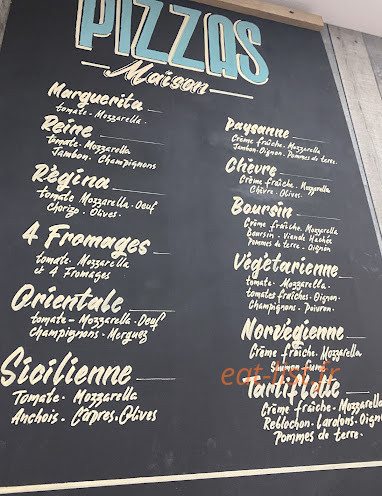 PIZZAS
Maison
Marguerita
tomate. Mozzarella.
Reine
tomate. Mozzarella
Jambon. Champignons
Règina
tomate Mozzarella. Oeuf
Chorizo. Olives.
4 Fromages
tomate. Mozzarella
et 4 Fromages
Orientale
tomate - Mozzarella. Oeuf
Champignons. Merguez
Sicilienne
Tomate. Mozzarella
Anchois. Câpres. Olives
Paysanne
Crème fraîche. Mozzarella
Jambon. Oignon. Pommes de terre.
Chèvre
Crème fraîche. Mozzarella
Chèvre. Olives.
Boursin
Crème fraîche. Mozzarella
Boursin - Viande Hachée
Pommes de terre. Oignon
Vègètarienne
tomate. Mozzarella.
tomates fraîches. Oignon.
Champignons. Poivron.
Norvègienne
Crème fraîche. Mozzarella
Saumon fumé
eat-list.fr
Tartiflette
Crème fraîche. Mozzarella
Reblochon. Lardons. Oignon
Pommes de terre.